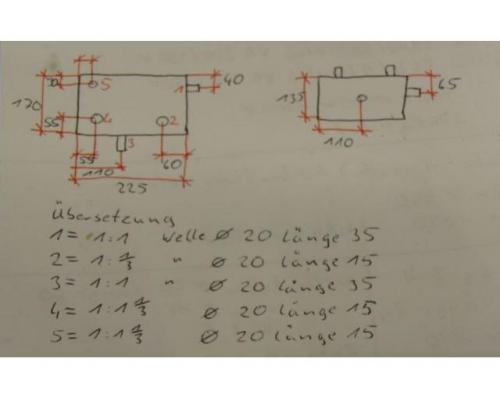 5
1
40
170
55
4
2
3
55
60
110
225
65
135
110
Übersetzung
1 = 1:1 Welle ⌀ 20 Länge 35
2 = 1:⅓ " ⌀ 20 Länge 15
3 = 1:1 " ⌀ 20 Länge 35
4 = 1:1⅓ ⌀ 20 Länge 15
5 = 1:1⅓ ⌀ 20 Länge 15